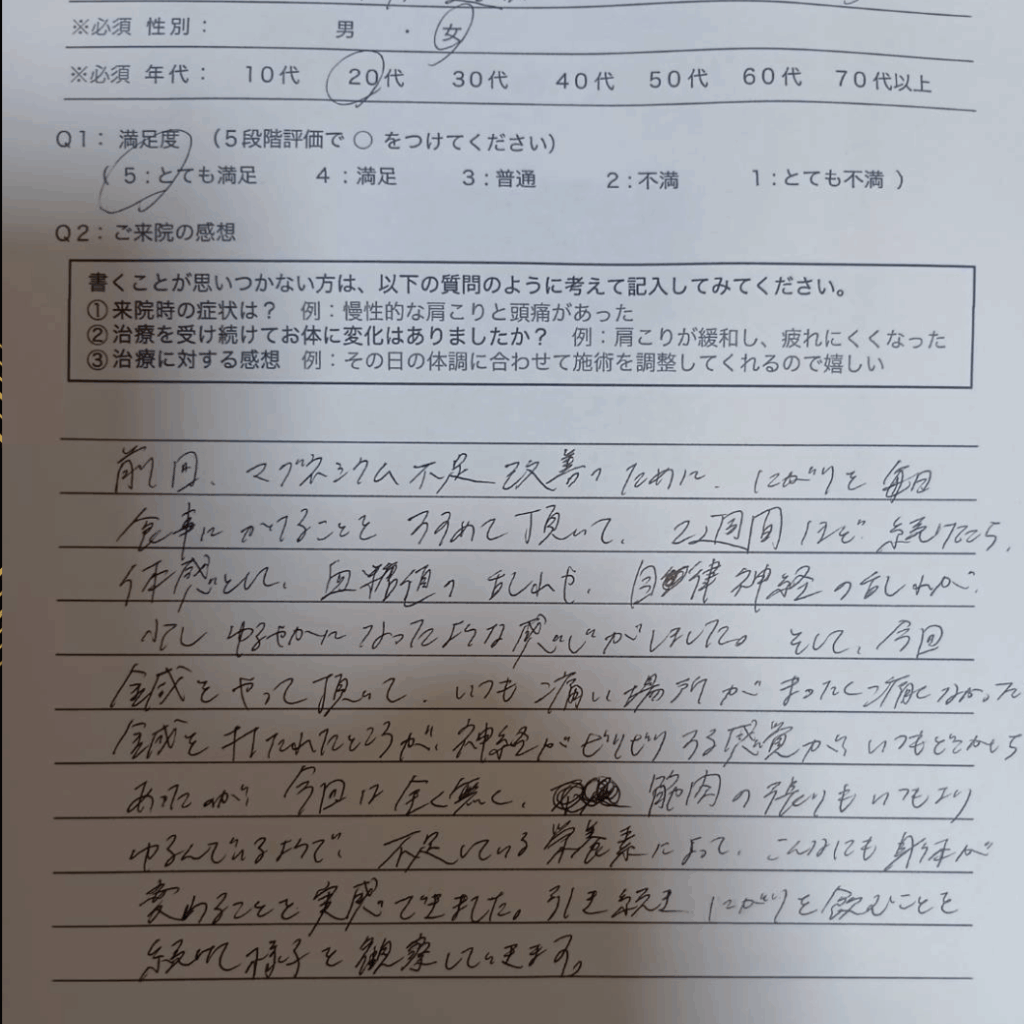 ※必須 性別： 男 ・ 女
※必須 年代： 10代 20代 30代 40代 50代 60代 70代以上
Q1： 満足度 （5段階評価で ○ をつけてください）
（ 5：とても満足 4：満足 3：普通 2：不満 1：とても不満 ）
Q2： ご来院の感想
書くことが思いつかない方は、以下の質問のように考えて記入してみてください。
① 来院時の症状は？ 例：慢性的な肩こりと頭痛があった
② 治療を受け続けてお体に変化はありましたか？ 例：肩こりが緩和し、疲れにくくなった
③ 治療に対する感想 例：その日の体調に合わせて施術を調整してくれるので嬉しい
前回、マグネシウム不足改善のために、にがりを毎日
食事にかけることをすすめて頂いて、2週間ほど続けたら、
体感として、血糖値の乱れや、自律神経の乱れが、
少しゆるやかになったような感じがしました。そして、今回
金鍼をやって頂いて、いつも痛い場所がまったく痛くなかった
金鍼を打たれたところが、神経がビリビリする感覚がいつもどこかしら
あったのが、今回は全く無く、筋肉の張りもいつもより
ゆるんでいるようで、不足している栄養素によって、こんなにも身体が
変わることを実感できました。引き続きにがりを飲むことを
続けて様子を観察していきます。